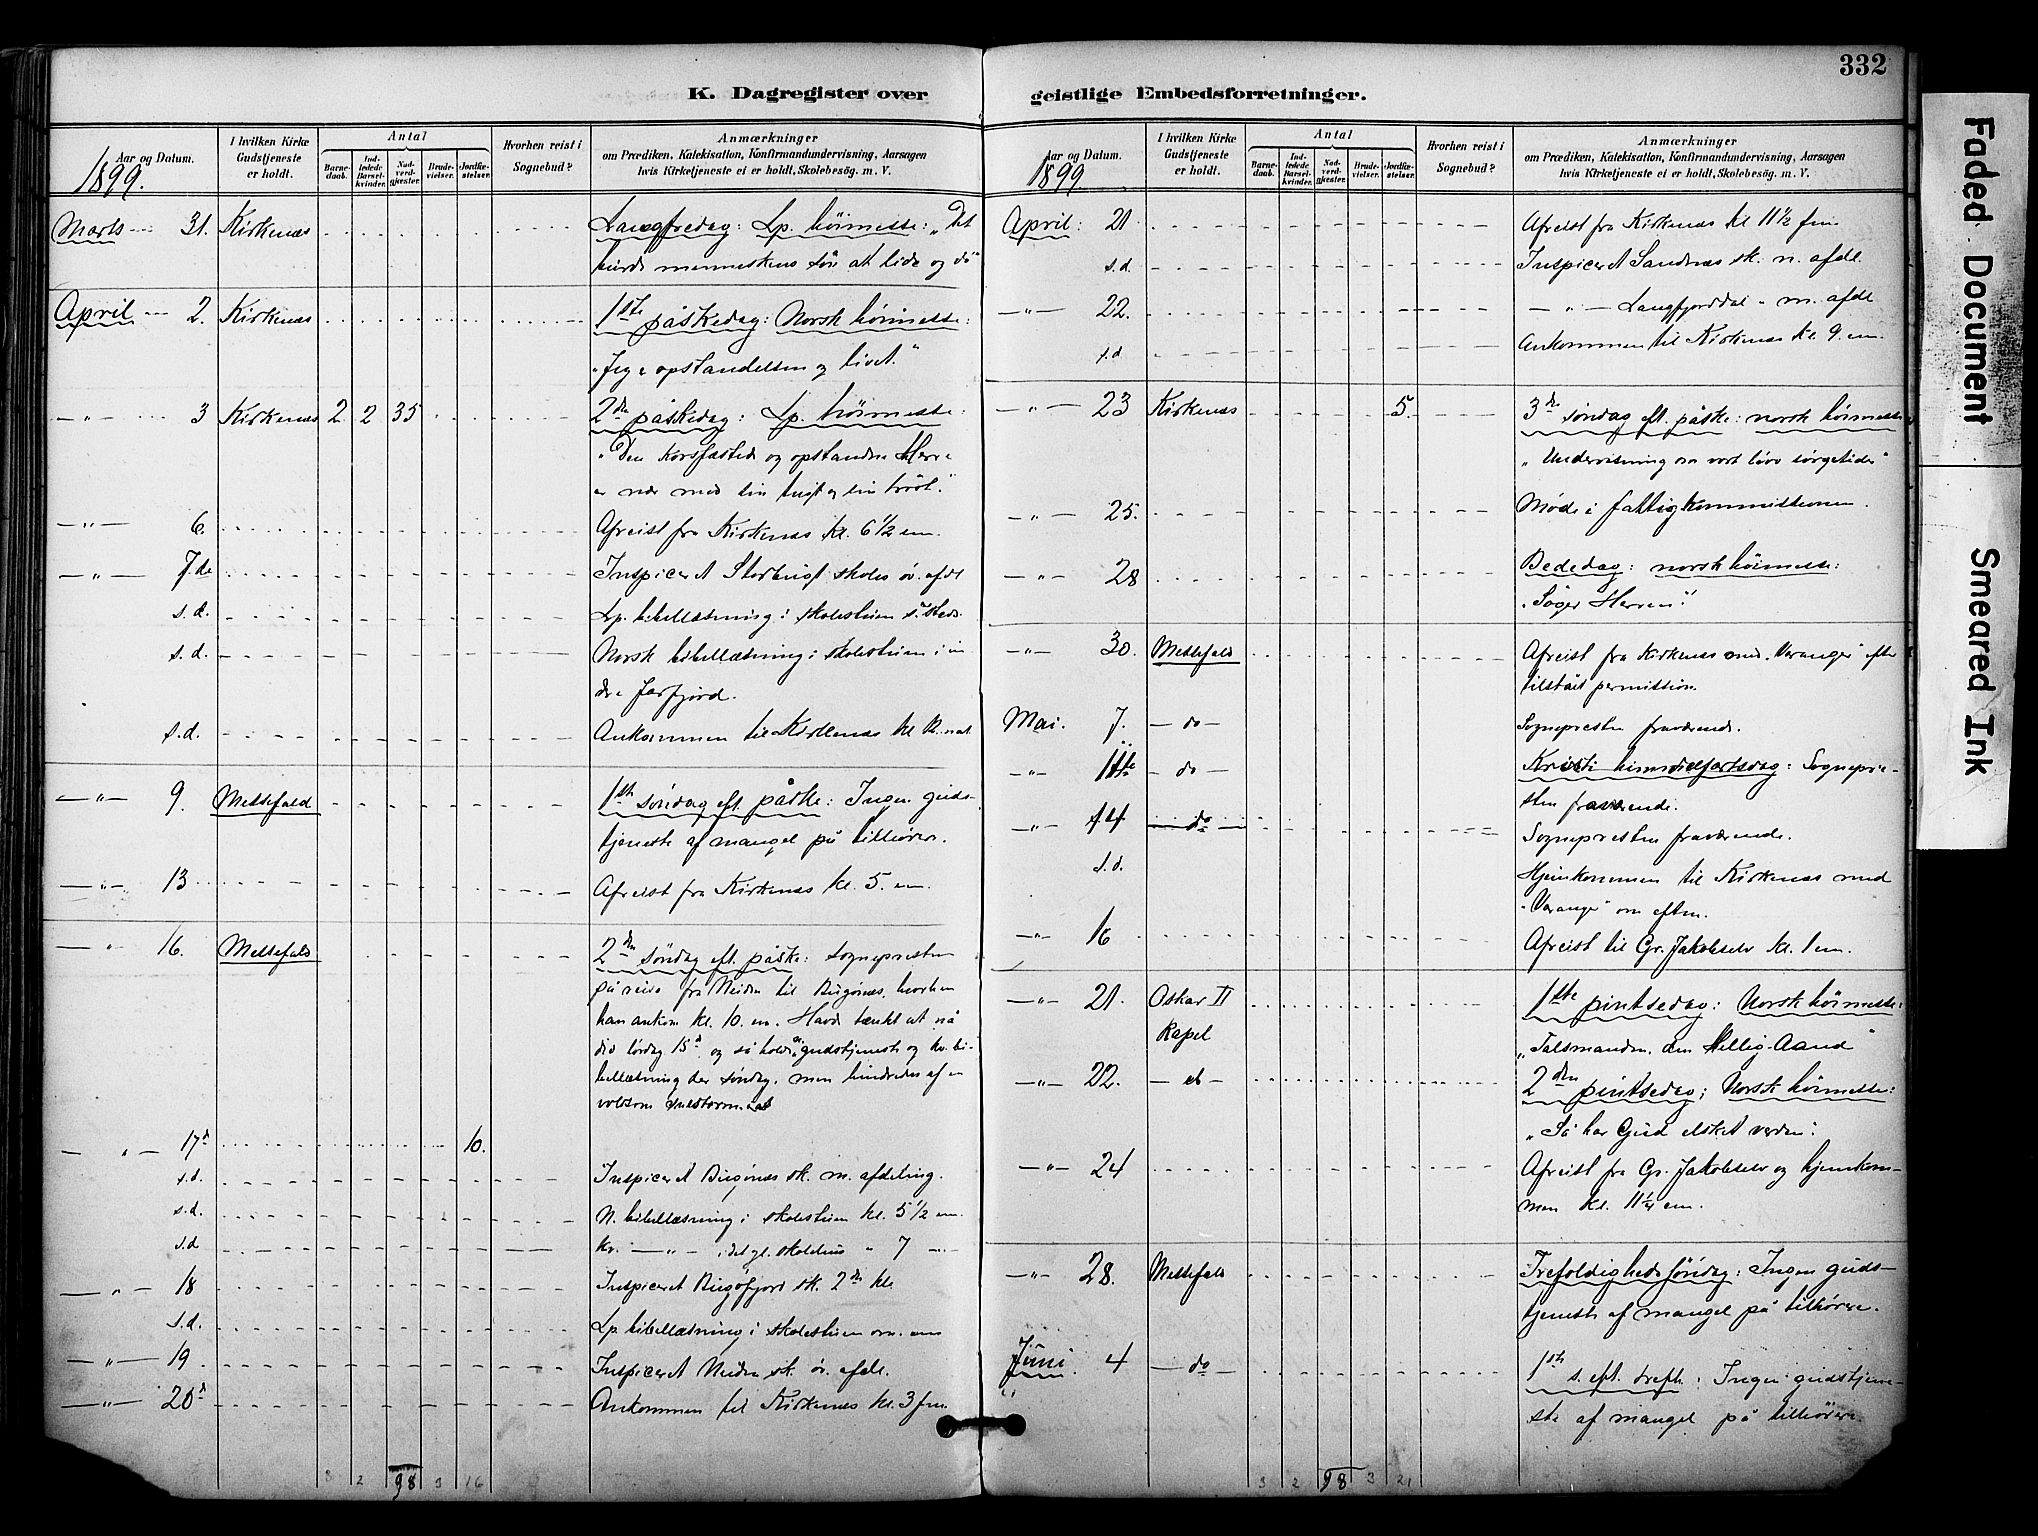 332
K. Dagregister over
geistlige Embedsforretninger.
Aar og Datum.
1899.
I hvilken Kirke Gudstjeneste er holdt.
Antal
Barnedaab.
Indledede Barselkvinder.
Nadverdgjester.
Brudevielser.
Jordfæstelser.
Hvorhen reist i Sognebud?
Anmærkninger
om Prædiken, Katekisation, Konfirmandundervisning, Aarsagen
hvis Kirketjeneste ei er holdt, Skolebesøg. m. V.
Marts 31. Kirkenæs Langfredag: Lp. høimesse: "Det
burde menneskens søn at lide og dø"
April 2. Kirkenæs 1ste påskedag: Norsk høimesse:
"Jeg e opstandelsen og livet."
-"- 3 Kirkenæs 2 2 35 2den påskedag: Lp. høimesse:
"Den korsfæstede og opstandne Herre
er nær med sin frygt og sin trøst."
-"- 6. Afreist fra Kirkenæs kl. 6 1/2 em.
-"- 7.de Inspiceret Storbugt skoles øv. afdl
s.d. Lp. bibellæsning i skolestuen s. steds.
s.d. Norsk bibellæsning i skolestuen i in
dre Jarfjord.
s.d. Ankommen til Kirkenæs kl 12. nat
-"- 9. Messefald 1ste søndag eft. påske: Ingen guds-
tjeneste af mangel på tilhører.
-"- 13 Afreist fra Kirkenæs kl. 5. em.
-"- 16. Messefald 2den søndag eft. påske: sognepresten
på reise fra Neiden til Bugønæs, hvorhen
han ankom kl. 10. em. Havde tænkt at nå
did lørdag 15d og så holde gudstjeneste og kv. bi-
bellæsning der søndag, men hindredes af en
voldsom snestorm
-"- 17d 10.
s.d. Inspiceret Bugønæs sk. m. afdeling.
s.d. N. bibellæsning i skolestuen kl. 5 1/2 em.
s.d Kv. -"- i det gl. skolehus " 7 -"-
-"- 18 Inspiceret Bugøfjord sk. 2den kl.
s.d. Lp bibellæsning i skolestuen om em
-"- 19. Inspiceret Neiden sk. øv. afdl.
-"- 20d Ankommen til Kirkenæs kl. 3 fm.
3 2 98 3 16
Aar og Datum.
1899
I hvilken Kirke Gudstjeneste er holdt.
Antal
Barnedaab.
Indledede Barselkvinder.
Nadverdgjester.
Brudevielser.
Jordfæstelser.
Hvorhen reist i Sognebud?
Anmærkninger
om Prædiken, Katekisation, Konfirmandundervisning, Aarsagen
hvis Kirketjeneste ei er holdt, Skolebesøg. m. V.
April: 21 Afreist fra Kirkenæs kl 11 1/2 fm.
s.d. Inspiceret Sandnæs sk. n. afdl.
-"- 22. -"- Langfjorddal " m. afdl
s.d. Ankommen til Kirkenæs kl. 9. em.
-"- 23 Kirkenæs 5. 3de søndag eft. påske: norsk høimesse
"Undervisning om vort livs sørgetider"
-"- 25. Møde i fattigkommissionen.
-"- 28 Bededag: norsk høimesse:
"Søger Herren!"
-"- 30. Messefald Afreist fra Kirkenæs med "Varanger" efter
tilstået permission.
Mai. 7. - do - Sognepresten fraværende.
-"- 11te - do - Kristi himmelfartsdag: Sognepre-
sten fraværende.
-"- 14 - do - Sognepresten fraværende.
s.d. Hjemkommen til Kirkenæs med
"Varanger" om eftm.
-"- 16 Afreist til Gr. Jakobselv kl. 1 em.
-"- 21. Oskar II 1ste pintsedag: Norsk høimesse:
Kapel "Talsmanden, den Hellig-Aand"
-"- 22. - do - 2den pintsedag: Norsk høimesse:
"Så har Gud elsket verden".
-"- 24 Afreist fra Gr. Jakobselv og hjemkom-
men kl. 11 1/4 em.
-"- 28. Messefald Trefoldighedssøndag: Ingen guds-
tjeneste af mangel på tilhørere.
Juni 4 - do - 1ste s. eft. trefh.: Ingen gudstjene-
ste af mangel på tilhørere.
3 2 98 3 21
Faded Document
Smeared Ink